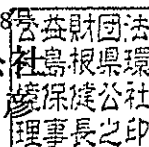 8号
公益財団法
人島根県環
境保健公社
理事長之印